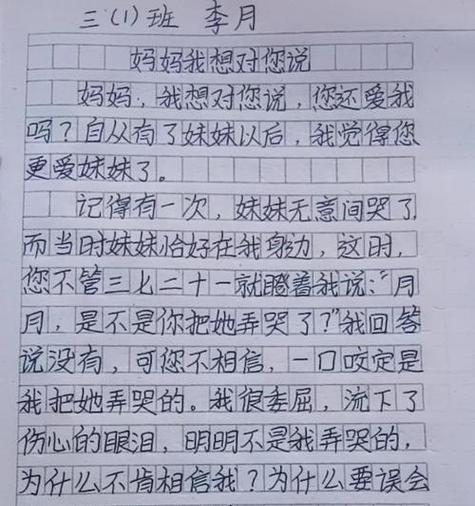 三(1)班 李月
妈妈我想对您说
妈妈，我想对您说，您还爱我
吗？自从有了妹妹以后，我觉得您
更爱妹妹了。
记得有一次，妹妹无意间哭了
而当时妹妹恰好在我身边，这时，
您不管三七二十一就瞪着我说：“月
月，是不是你把她弄哭了？”我回答
说没有，可您不相信，一口咬定是
我把她弄哭的。我很委屈，流下了
伤心的眼泪，明明不是我弄哭的，
为什么不肯相信我？为什么要误会